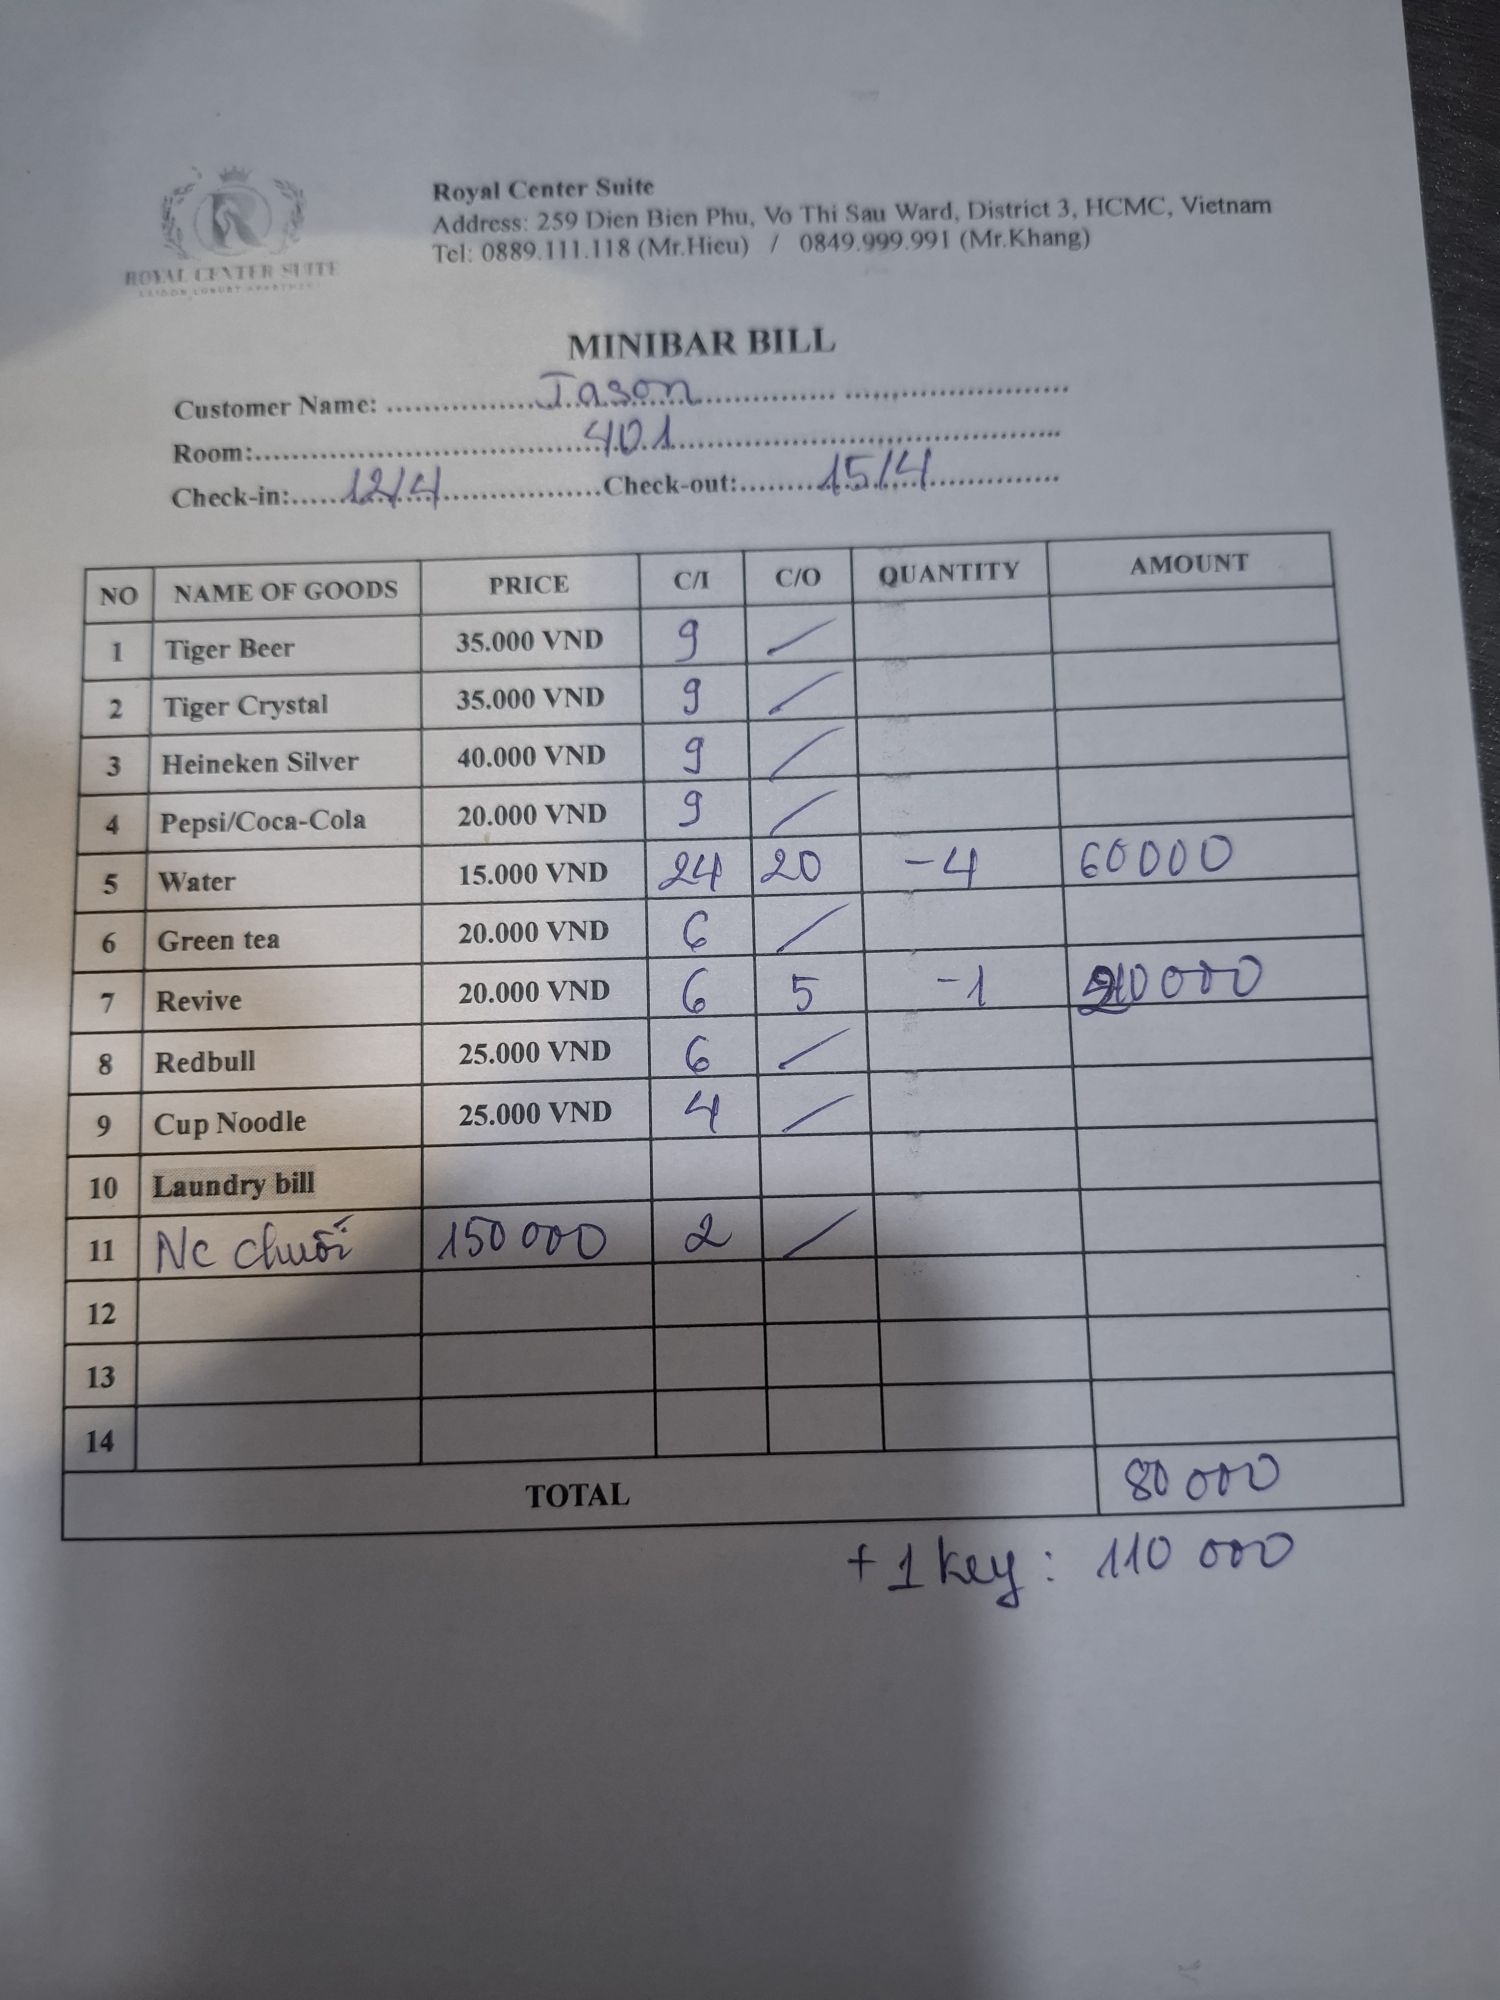 ROYAL CENTER SUITE
SAIGON LUXURY APARTMENT
Royal Center Suite
Address: 259 Dien Bien Phu, Vo Thi Sau Ward, District 3, HCMC, Vietnam
Tel: 0889.111.118 (Mr.Hieu) / 0849.999.991 (Mr.Khang)
MINIBAR BILL
Customer Name: Jason
Room: 401
Check-in: 12/4 Check-out: 15/4
NO NAME OF GOODS PRICE C/I C/O QUANTITY AMOUNT
1 Tiger Beer 35.000 VND 9 /
2 Tiger Crystal 35.000 VND 9 /
3 Heineken Silver 40.000 VND 9 /
4 Pepsi/Coca-Cola 20.000 VND 9 /
5 Water 15.000 VND 24 20 -4 60000
6 Green tea 20.000 VND 6 /
7 Revive 20.000 VND 6 5 -1 20000
8 Redbull 25.000 VND 6 /
9 Cup Noodle 25.000 VND 4 /
10 Laundry bill
11 Nc chuối 150000 2 /
12
13
14
TOTAL 80 000
+ 1 key : 110 000